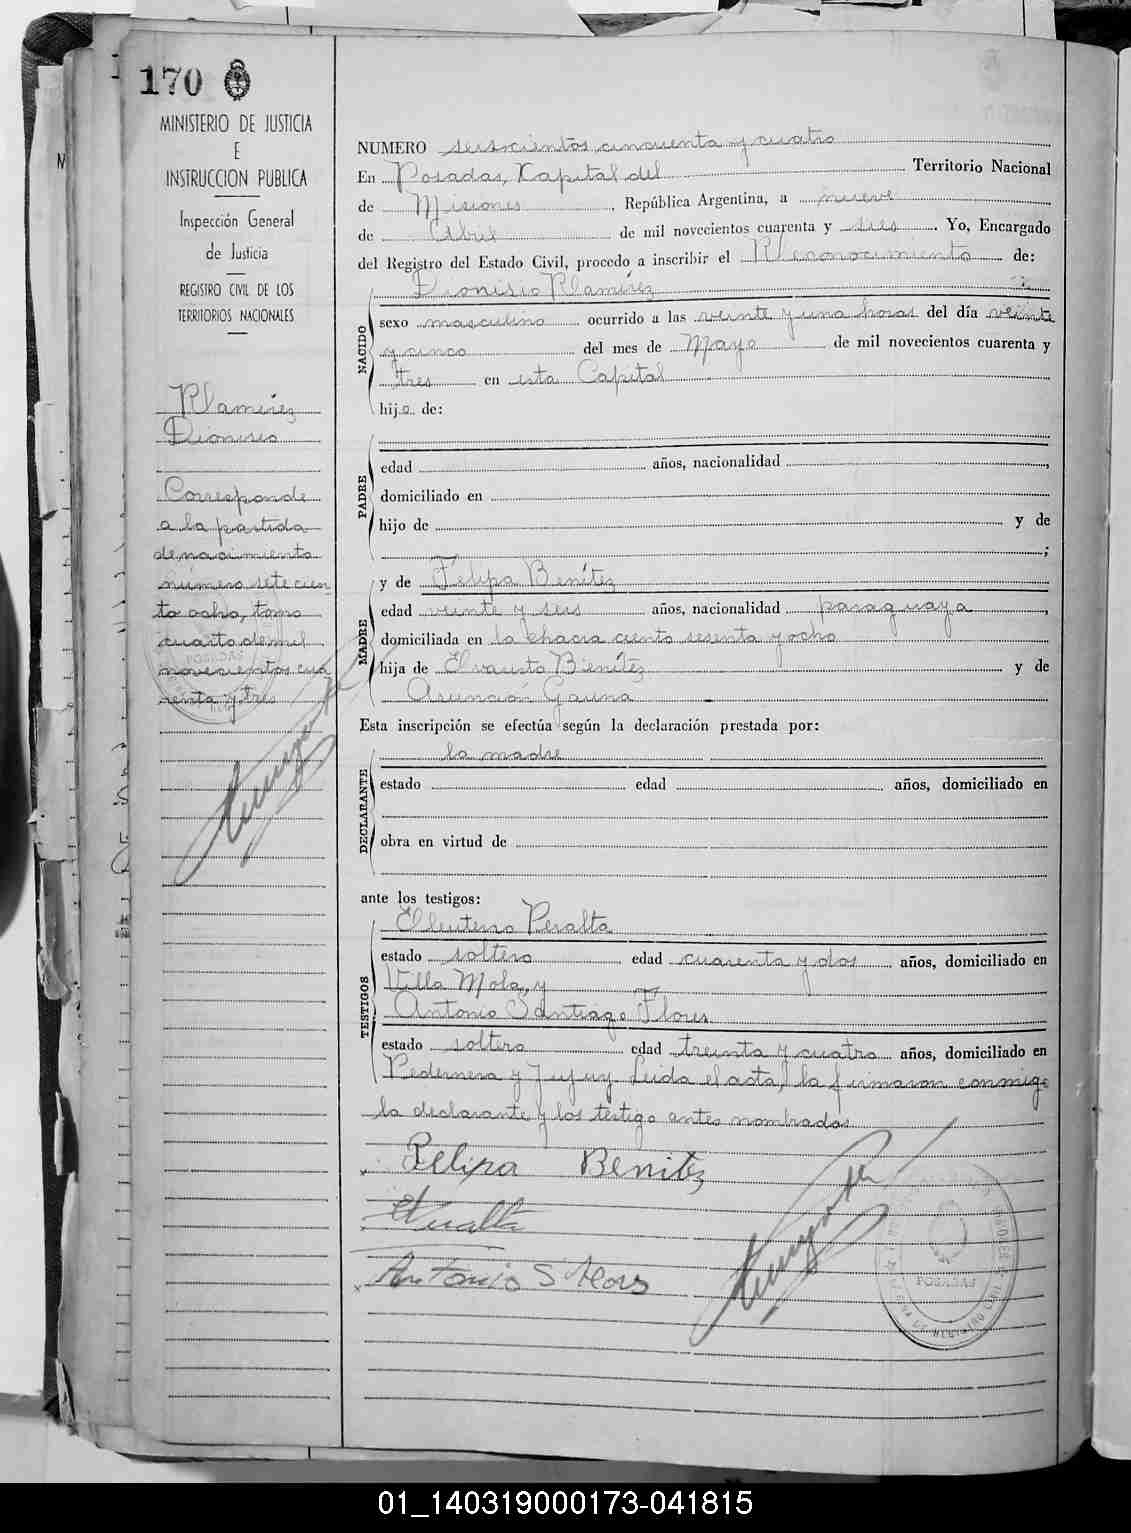 170
MINISTERIO DE JUSTICIA
E
INSTRUCCION PUBLICA
Inspección General
de Justicia
REGISTRO CIVIL DE LOS
TERRITORIOS NACIONALES
Ramírez
Dionisio
Corresponde
a la partida
de nacimiento
número sete cien
to ocho, tomo
cuarto de mil
novecientos cua
renta y tres
NUMERO seiscientos cincuenta y cuatro
En Posadas, Kapital del Territorio Nacional
de Misiones, República Argentina, a nueve
de Abril de mil novecientos cuarenta y seis. Yo, Encargado
del Registro del Estado Civil, procedo a inscribir el Reconocimiento de:
Dionisio Ramírez
NACIDO
sexo masculino ocurrido a las veinte y una horas del día veinte
y cinco del mes de Mayo de mil novecientos cuarenta y
tres en esta Capital
hijo de:
PADRE
edad años, nacionalidad ,
domiciliado en
hijo de y de
;
y de Felipa Benítez
MADRE
edad veinte y seis años, nacionalidad paraguaya,
domiciliada en la chacra ciento sesenta y ocho
hija de Evausto Benítez y de
Asuncion Gauna
Esta inscripción se efectúa según la declaración prestada por:
la madre
DECLARANTE
estado edad años, domiciliado en
obra en virtud de
ante los testigos:
Eleuterio Peralta
TESTIGOS
estado soltero edad cuarenta y dos años, domiciliado en
Villa Mola, y
Antonio Santiago Flores
estado soltero edad treinta y cuatro años, domiciliado en
Pedernera y Jujuy Leida el acta, la firmaron conmigo
la declarante y los testigo antes nombrados
Felipa Benítez
EPeralta
Antonio S Flores
POSADAS
01_140319000173-041815